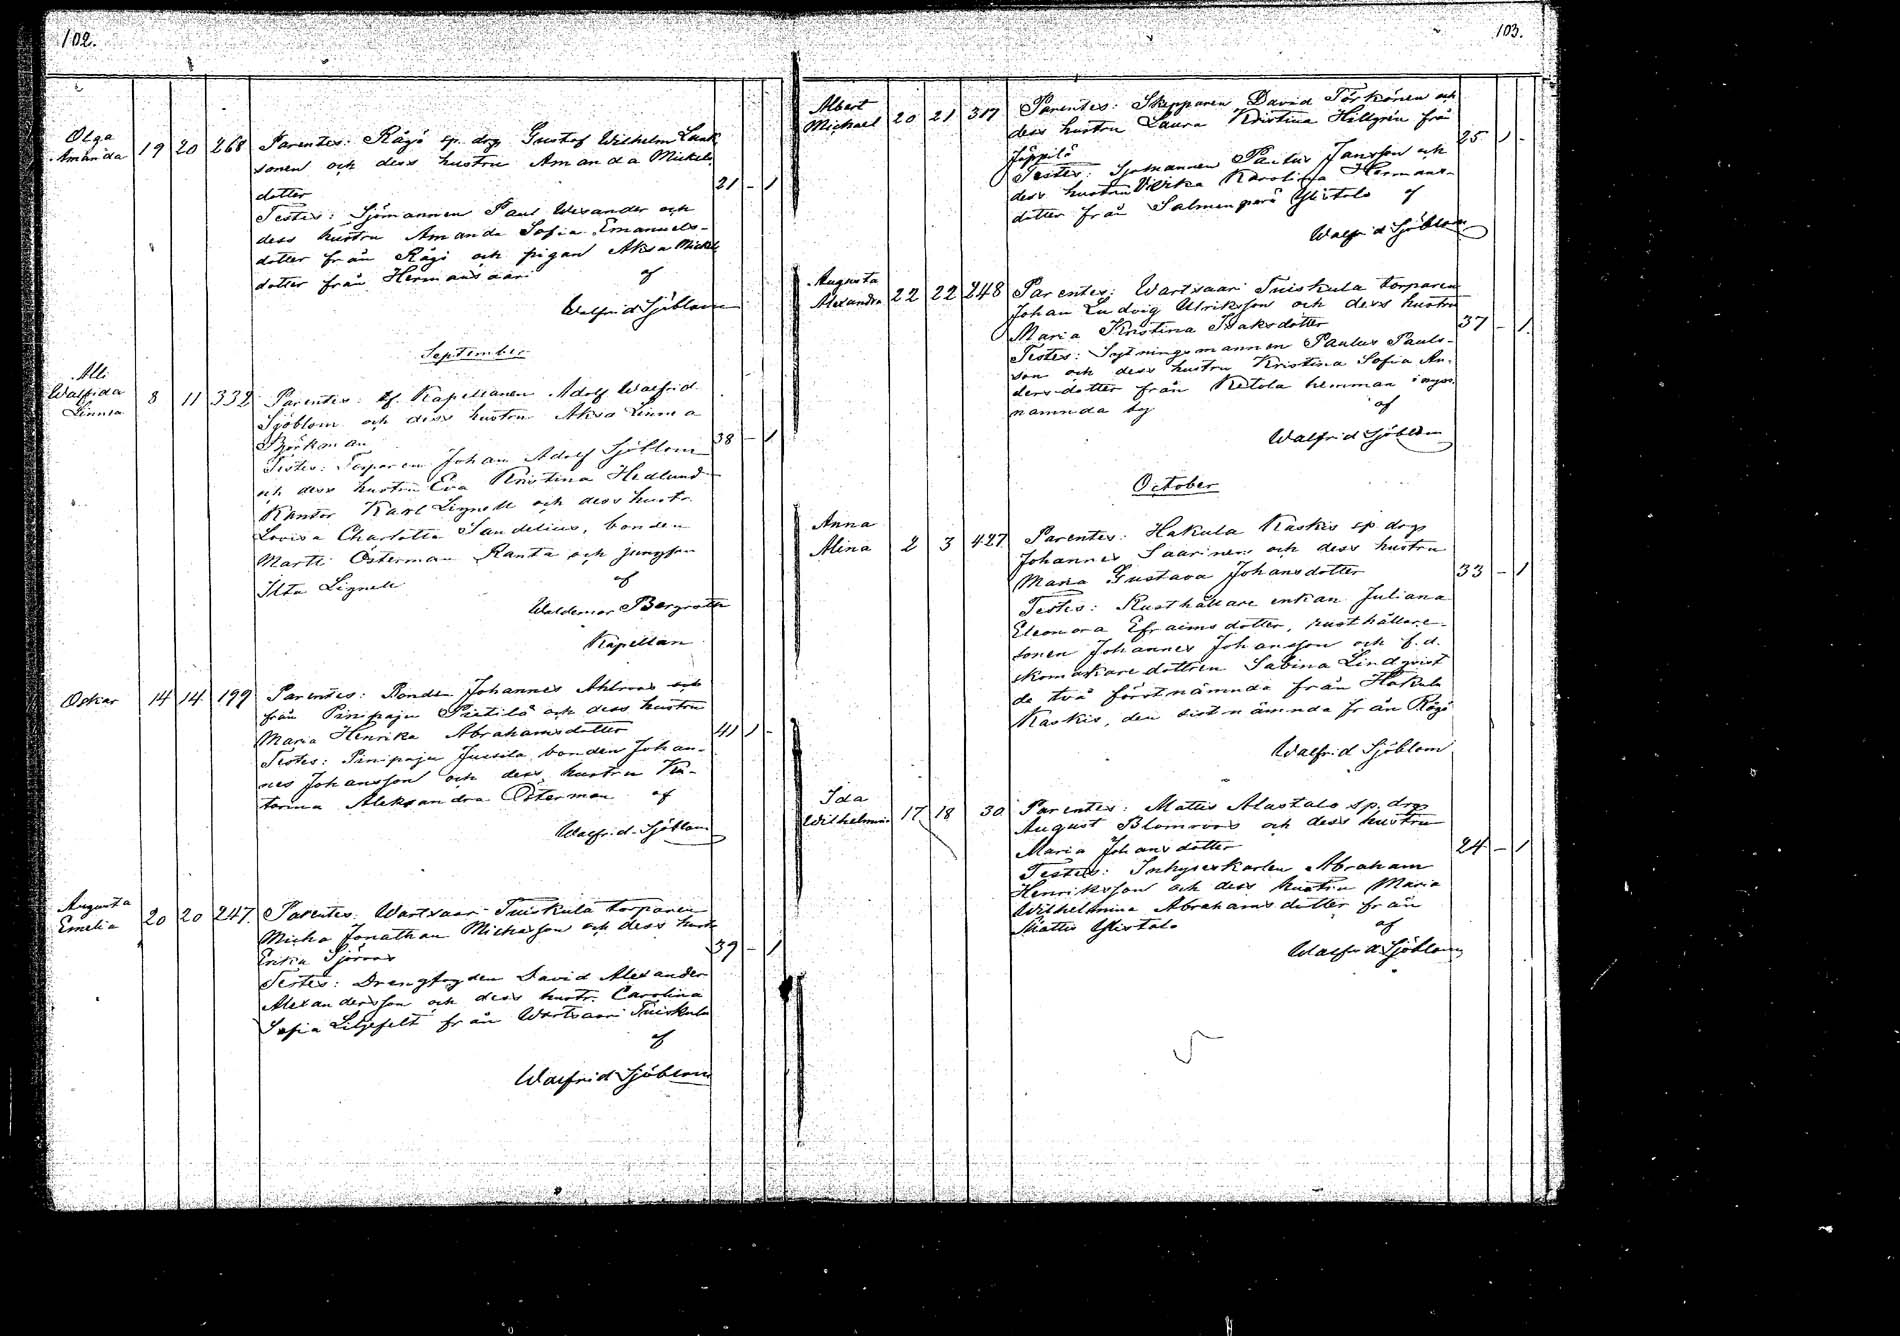 102.
Olga
Amanda 19 20 268 Parentes: Rågö sp. drgs Gustaf Wilhelm Laak
sonen och dess hustru Amanda Mickels
dotter 21 - 1
Testes: Sjömannen Paul Wexander och
dess hustru Amanda Sofia Emanuels-
dotter från Rågö och pigan Aksa Mickels
dotter från Hermansaari af
Walfrid Sjöblom
September
Alli
Walfrida
Linnea 8 11 332 Parentes: v.f. Kapellanen Adolf Walfrid
Sjöblom och dess hustru Aksa Linnea
Björkman 38 - 1
Testes: Torparen Johan Adolf Sjöblom
och dess hustru Eva Kristina Hedlund
Kantor Karl Lignell och dess hustr.
Lovisa Charlotta Sandelius, bonden
Martti Österman Ranta och jungfru
Ilta Lignell
af
Waldemar Bergroth
Kapellan
Oskar 14 14 199 Parentes: Bonden Johannes Ahlroos
från Pinipaju Pietilä och dess hustru
Maria Henrika Abrahamsdotter 41 1 -
Testes: Pinipaju Jussila bonden Johan-
nes Johansson och dess hustru Ka-
tarina Aleksandra Österman af
Walfrid Sjöblom
Augusta
Emelia 20 20 247 Parentes: Wartsaari Tuiskula torparen
Micho Jonathan Michelsson och dess hustr.
Erika Sjöroos 39 - 1
Testes: Drengfogden David Alexander
Alexandersson och dess hustr. Carolina
Sofia Liljefelt från Wartsaari Tuiskula
af
Walfrid Sjöblom
103.
Albert
Michael 20 21 317 Parentes: Skepparen David Törkönen och
dess hustru Laura Kristina Hillgrén från
Jäppilä 25 1 -
Testes: Sjömannen Paulus Jansson och
dess hustru Karolina Hermans-
dotter från Salmenperä Ylistalo af
Walfrid Sjöblom
Augusta
Alexandra 22 22 248 Parentes: Wartsaari Tuiskula torparen
Johan Ludvig Ulriksson och dess hustru
Maria Kristina Isaksdotter 37 - 1
Testes: Sytningsmannen Paulus Pauls-
son och dess hustru Kristina Sofia An-
dersdotter från Ketola hemman i nyss
nämnda by af
Walfrid Sjöblom
October
Anna
Alina 2 3 427 Parentes: Hakula Kaskis sp drgs
Johannes Saarinen och dess hustru
Maria Gustava Johansdotter 33 - 1
Testes: Rusthållare enkan Juliana
Eleonora Efraimsdotter, rusthållare-
sonen Johannes Johansson och f.d.
skomakare dottren Sabina Lindqvist
de två förstnämnda från Hakula
Kaskis, den sistnämnda från Rågö
Walfrid Sjöblom
Ida
Wilhelmina 17 18 30 Parentes: Mattis Alastalo sp. drgs
August Blomroos och dess hustru
Maria Johansdotter 24 - 1
Testes: Inhyseskarlen Abraham
Henriksson och dess hustru Maria
Wilhelmina Abrahamsdotter från
Mattis Ylistalo af
Walfrid Sjöblom